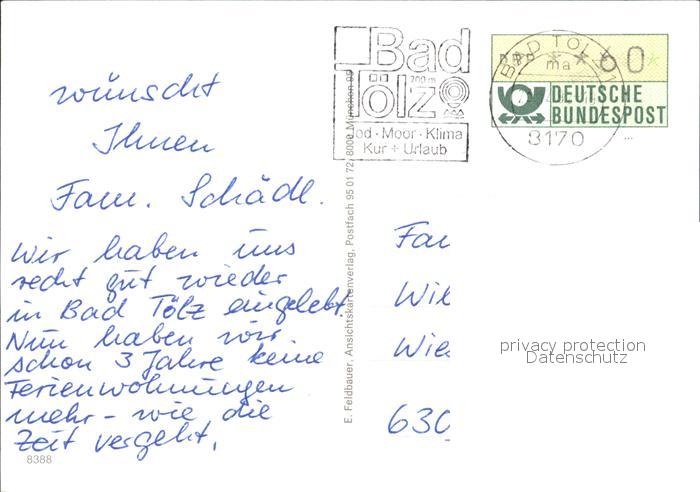 Bad
Tölz
700 m
Jod - Moor - Klima
Kur + Urlaub
BAD TÖLZ
ma
60
DEUTSCHE
BUNDESPOST
8170
wünscht
Ihnen
Fam. Schädl.
Wir haben uns
recht gut wieder
in Bad Tölz eingelebt.
Nun haben wir
schon 3 Jahre keine
Ferienwohnungen
mehr - wie die
Zeit vergeht.
8388
E. Feldbauer, Ansichtskartenverlag, Postfach 95 01 72, 8000 München
Fa
Wil
Wie
630
privacy protection
Datenschutz